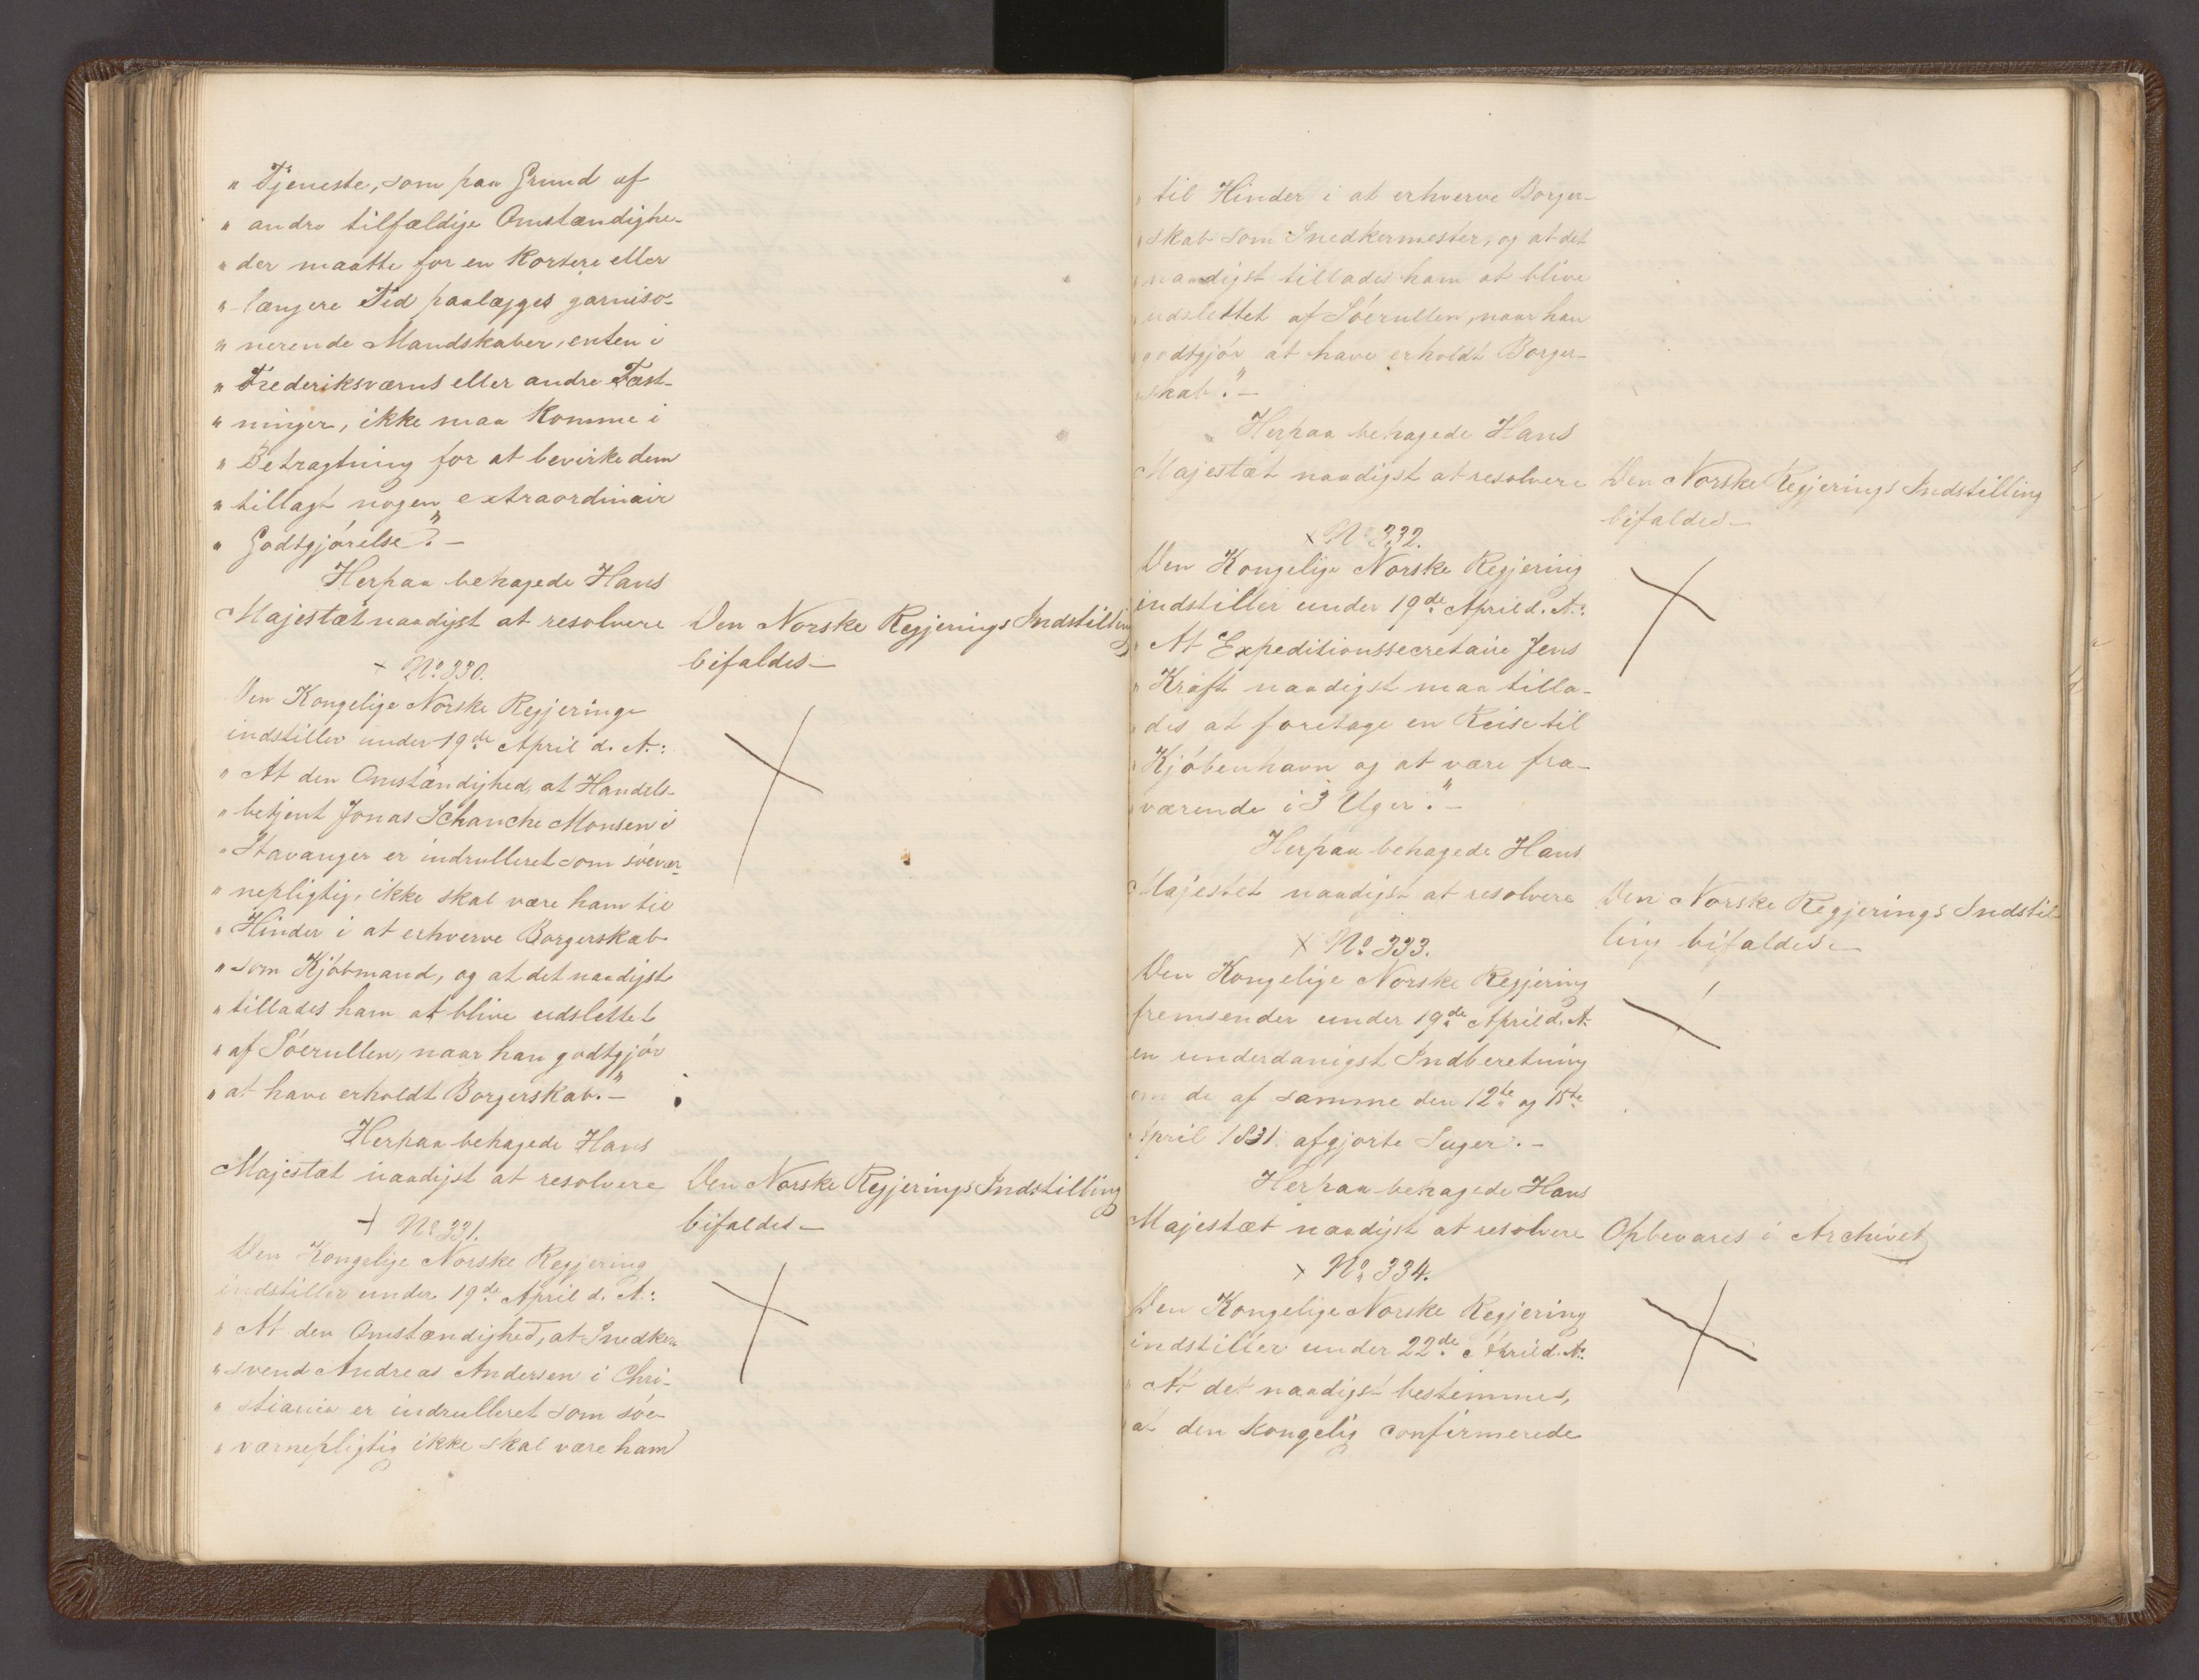 " Tjeneste, som paa Grund af
" andre tilfældige Omstændighe-
" der maatte for en kortere eller
" længere Tid paalægges garniso-
" nerende Mandskaber, enten i
" Frederiksværns eller andre Fæst-
" ninger, ikke maa komme i
" Betragtning for at bevirke dem
" tillagt nogen extraordinair
" Godtgjörelse". —
Herpaa behagede Hans
Majestæt naadigst at resolvere
Den Norske Regjerings Indstilling
bifaldes —
+ No. 330.
Den Kongelige Norske Regjering
indstiller under 19de April d. A.:
" At den Omstændighed, at Handels-
" betjent Jonas Schanche Monsen i
" Stavanger er indrulleret som söevær-
" nepligtig, ikke skal være ham til
" Hinder i at erhverve Borgerskab
" som Kjöbmand, og at det naadigst
" tillades ham at blive udslettet
" af Söerullen, naar han godtgjör
" at have erholdt Borgerskab." —
Herpaa behagede Hans
Majestæt naadigst at resolvere
Den Norske Regjerings Indstilling
bifaldes —
+ No. 331.
Den Kongelige Norske Regjering
indstiller under 19de April d. A.:
" At den Omstændighed, at Snedker-
" svend Andreas Andersen i Chri-
" stiania er indrulleret som söe-
" værnepligtig ikke skal være ham
" til Hinder i at erhverve Borger-
" skab som Snedkermester, og at det
" naadigst tillades ham at blive
" udslettet af Söerullen, naar han
" godtgjör at have erholdt Borger-
" skab." —
Herpaa behagede Hans
Majestæt naadigst at resolvere
Den Norske Regjerings Indstilling
bifaldes —
+ No. 332.
Den Kongelige Norske Regjering
indstiller under 19de April d. A.:
" At Expeditionssecretaire Jens
" Kraft naadigst maa tilla-
" des at foretage en Reise til
" Kjöbenhavn og at være fra-
" værende i 3 Uger." —
Herpaa behagede Hans
Majestet naadigst at resolvere
Den Norske Regjerings Indstil-
ling bifaldes. —
+ No. 333.
Den Kongelige Norske Regjering
fremsender under 19de April d. A.
en underdanigst Indberetning
om de af samme den 12te og 15te
April 1831 afgjorte Sager. —
Herpaa behagede Hans
Majestæt naadigst at resolvere
Opbevares i Archivet
+ No. 334.
Den Kongelige Norske Regjering
indstiller under 22de April d. A.:
" At det naadigst bestemmes,
at den kongelig confirmerede